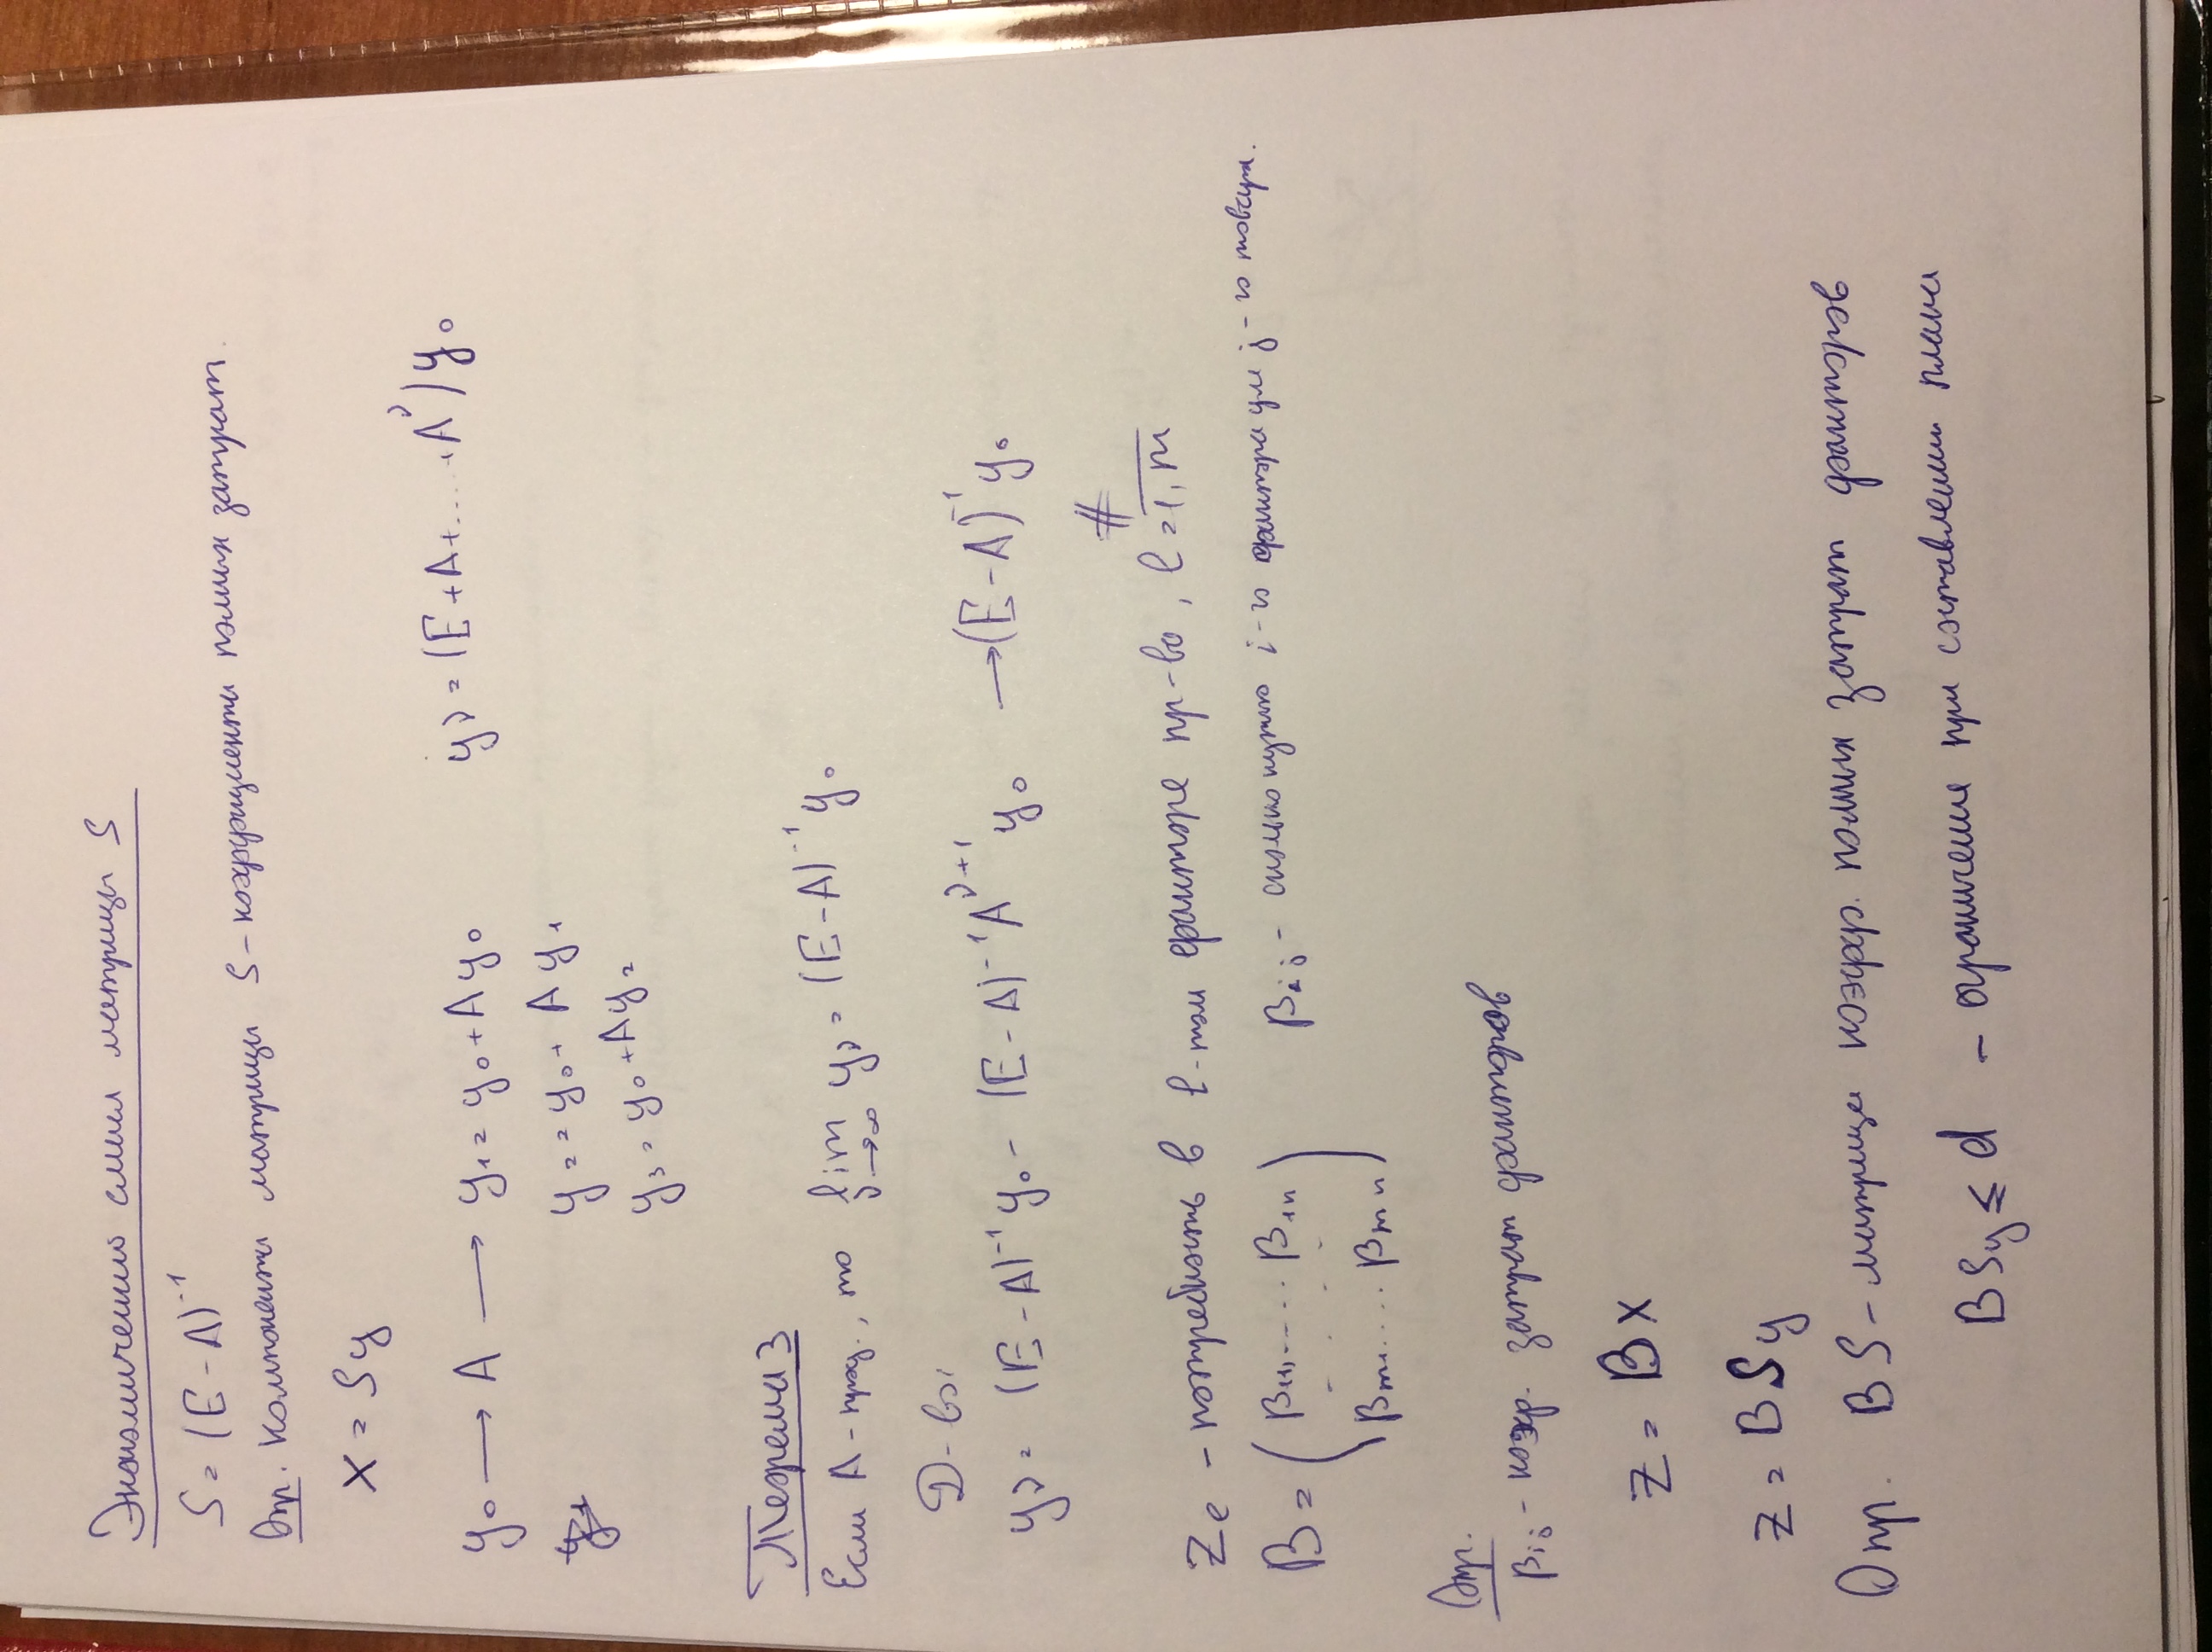 Экономический смысл матрицы S
S = (E - A)^-1
Опр. Компоненты матрицы S - коэффициенты полных затрат.
x = Sy
y₀ → A → y₁ = y₀ + Ay₀
yν = (E + A + .... + A^ν) y₀
y₂ = y₀ + Ay₁
y₃ = y₀ + Ay₂
Теорема 3
Если A - прод., то lim yν = (E - A)^-1 y₀
ν → ∞
Д-во:
yν = (E - A)^-1 y₀ - (E - A)^-1 A^ν+1 y₀ → (E - A)^-1 y₀
#
Zℓ - потребность в ℓ-том факторе пр-во, ℓ = 1, m
B = ( β₁₁, ..... β₁n
- . . - -
βm₁ ..... βmn )
βij - сколько нужно i-го фактора для j-го товара.
Опр.
βij - коэф. затрат факторов
z = Bx
z = BSy
Опр. BS - матрица коэфф. полных затрат факторов
BSy ≤ d - ограничение при составлении плана